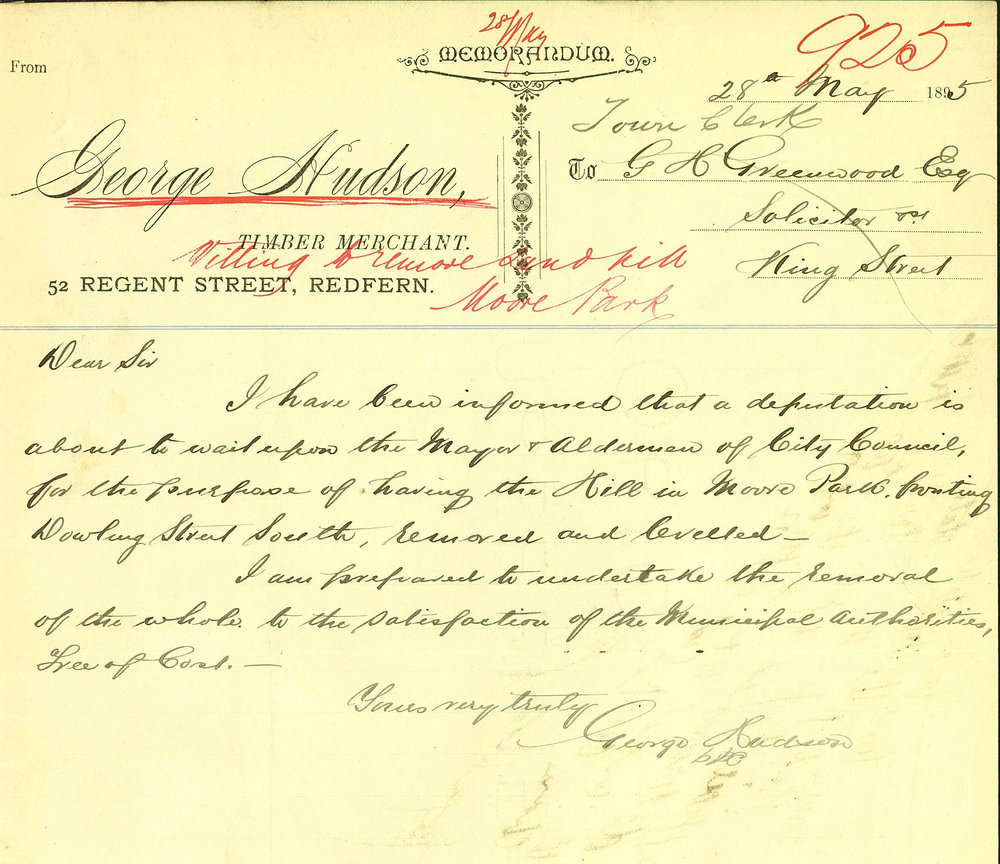 28/May
925
MEMORANDUM.
From
28th May 1895
Town Clerk
To G H Greenwood Esq
George Hudson,
Solicitor
TIMBER MERCHANT.
King Street
Willing to remove Sand hill
52 REGENT STREET, REDFERN.
Moore Park
Dear Sir
I have been informed that a deputation is
about to wait upon the Mayor & Aldermen of City Council,
for the purpose of having the Hill in Moore Park, fronting
Dowling Street South, removed and levelled —
I am prepared to undertake the removal
of the whole to the satisfaction of the Municipal Authorities,
Free of Cost. —
Yours very truly
George Hudson